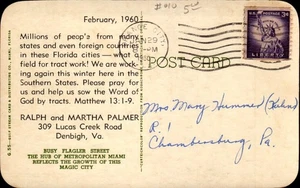 February, 1960
Millions of peop'a from many
states and even foreign countries
in these Florida cities — what a
field for tract work! We are work-
ing again this winter here in the
Southern States. Please pray for
us and help us sow the Word of
God by tracts. Matthew 13:1-9.
RALPH and MARTHA PALMER
309 Lucas Creek Road
Denbigh, Va.
BUSY FLAGLER STREET
THE HUB OF METROPOLITAN MIAMI
REFLECTS THE GROWTH OF THIS
MAGIC CITY
JAN 29
PM
POST CARD
LIBERTY
3¢
Mrs Mary Hummel (Hahn)
R. 1
Chambersburg, Pa.